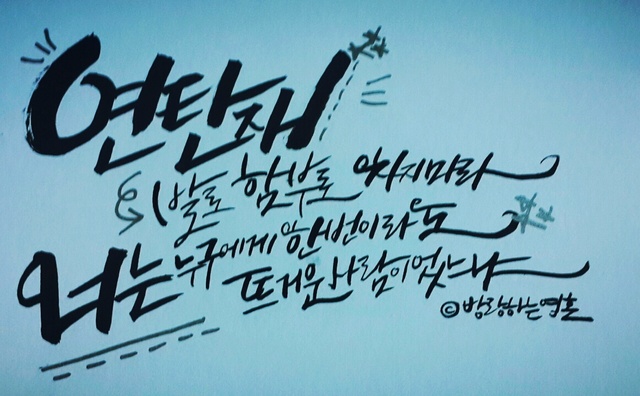 연탄재
발로 함부로 차지마라
너는 누구에게 한번이라도
뜨거운 사람이었느냐
©방랑하는영혼